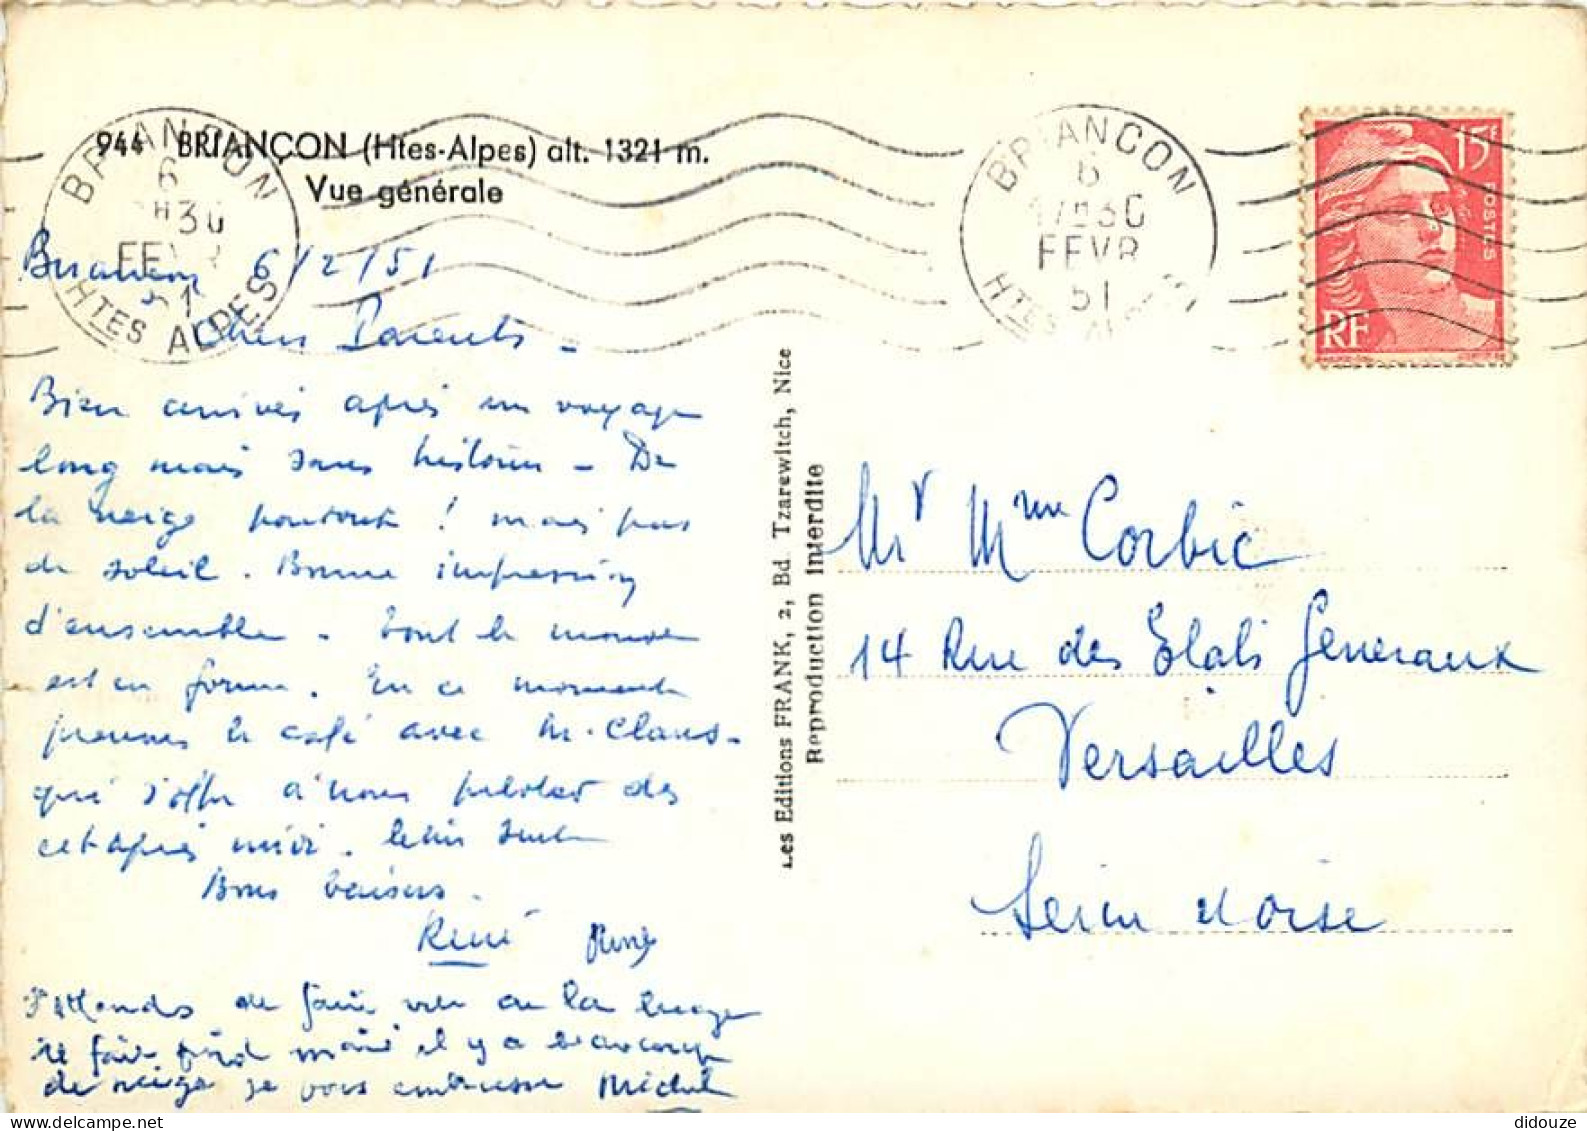 944 BRIANÇON (Htes-Alpes) alt. 1321 m.
Vue générale
BRIANÇON
6
H30
FEVR
51
HTES ALPES
BRIANÇON
6
17H30
FEVR
51
HTES ALPES
15F
POSTES
RF
Briançon 6/2/51
Chers Parents -
Bien arrivés après un voyage
long mais sans histoire - De
la neige partout ! mais pas
de soleil. Bonne impression
d'ensemble. Tout le monde
est en forme. En ce moment
prenons le café avec M. Claus-
qui s'offre à nous piloter dès
cet après midi. Lettre suit
Bons baisers.
René
J'attends de faire de la luge
il fait froid mais il y a beaucoup
de neige je vous embrasse Michel
Les Editions FRANK, 2, Bd. Tzarewitch, Nice
Reproduction Interdite
Mr Mme Corbic
14 Rue des Etats Generaux
Versailles
Seine et Oise
didouze